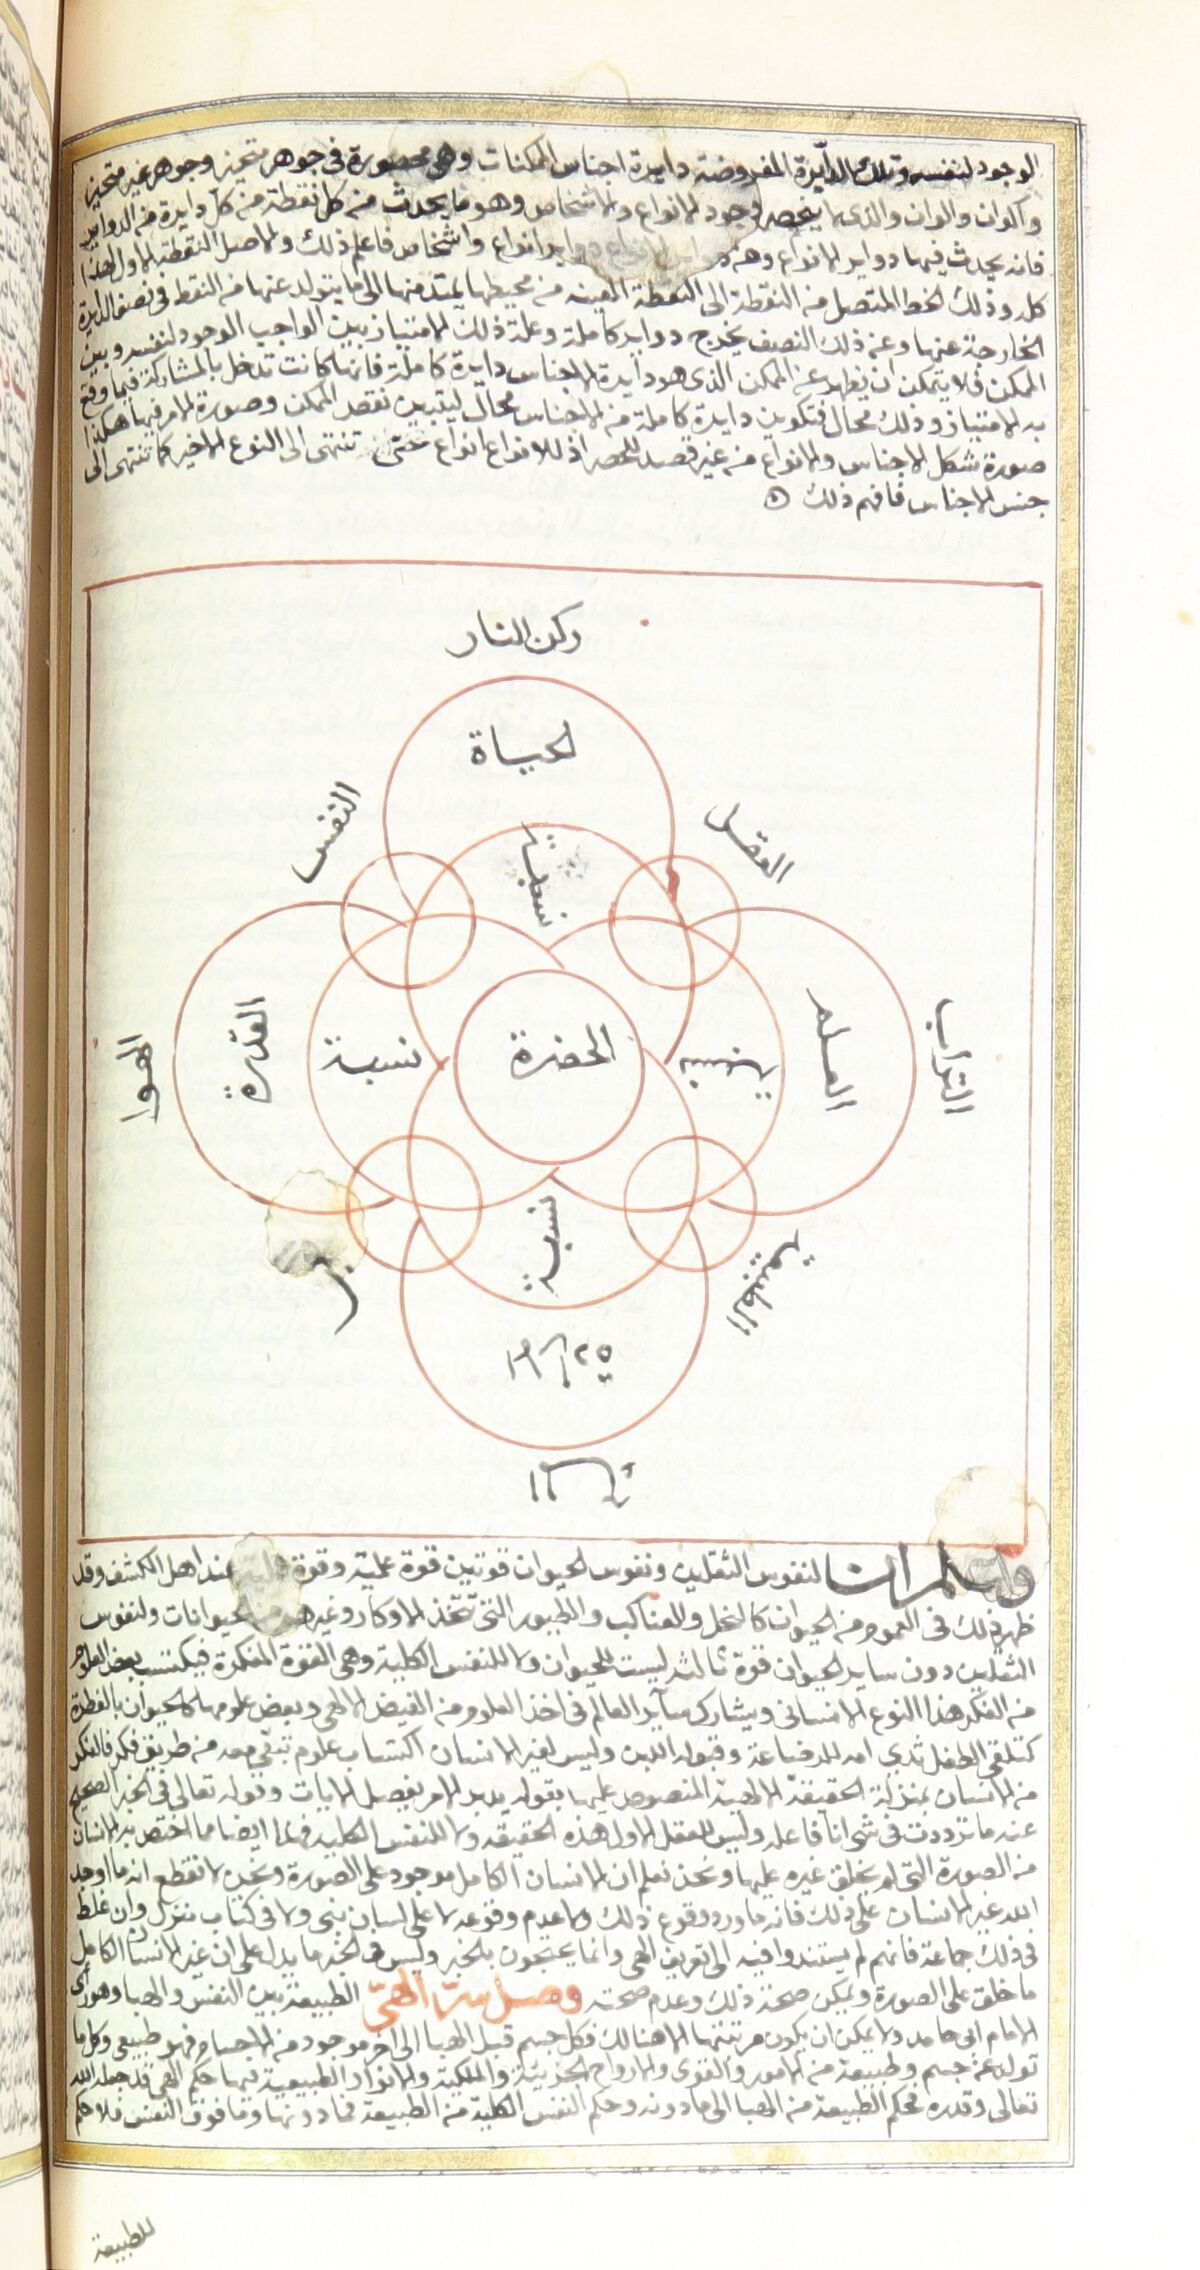 الوجود لنفسه وتلك الدايرة المفروضة دايرة اجناس الممكنات وهى محصورة فى جوهر متحيز وجوهر غير متحيز
واكوان والوان والذى لا ينحصر وجود الانواع والاشخاص وهو ما يحدث من كل نقطة من كل دايرة من الدواير
فانه يحدث فيها دواير الانواع وهذه دواير انواع واشخاص فاعلم ذلك والاصل النقطة الاولى لهذا
كله وذلك الخط المتصل من النقطة الى النقطة المعينه من محيطها يمتد منها الى ما يتولد عنها من النقط فى نصف الدايرة
الخارجة عنها وعن ذلك النصف يخرج دواير كاملة وعلة ذلك الامتياز بين الواجب الوجود لنفسه وبين
الممكن فلا يتمكن ان يظهر عن الممكن الذى هو دايرة الاجناس دايرة كاملة فانها كانت تدخل بالمشاركة فيما وقع
به الامتياز وذلك محال فتكوين دايرة كاملة من الاجناس محال ليتبين نقص الممكن وصورة الامر فيها هكذا
صورة شكل الاجناس والانواع من غير قصد للحصر اذ للانواع انواع حتى تنتهى الى النوع الاخير كما تنتهى الى
جنس الاجناس فافهم ذلك
ركن النار
الحياة
النفس
العقل
نسبة
الهوا
القدرة
نسبة
الحضرة
نسبة
العلم
التراب
نسبة
الطبيعة
الما
واعلم ان لنفوس الثقلين ونفوس الحيوان قوتين قوة علمية وقوة عملية عند اهل الكشف وقد
ظهر ذلك فى العموم من الحيوان كالنحل والعناكب والطيور التى تتخذ الاوكار وغيرهم من الحيوانات ولنفوس
الثقلين دون ساير الحيوان قوة ثالثه ليست للحيوان ولا للنفس الكلية وهى القوة المفكرة فيكتسب بعض العلوم
من الفكر هذا النوع الانسانى ويشارك سآير العالم فى اخذ العلوم من الفيض الالهى وبعض علومها كالحيوان بالفطرة
كتلقى الطفل ثدى امه للرضاعة وقبوله اللبن وليس لغير الانسان اكتساب علوم تبقى معه من طريق فكر فالفكر
من الانسان بمنزلة الحقيقة الالهية المنصوص عليها بقوله يدبر الامر يفصل الايات وقوله تعالى فى الخبر الصحيح
عنه ما ترددت فى شى انا فاعله وليس للعقل الاول هذه الحقيقه ولا للنفس الكليه فهذا ايضا مما اختص به الانسان
من الصورة التى لم يخلق غيره عليها ونحن نعلم ان الانسان الكامل موجود على الصورة ونحن لا نقطع انه ما اوجد
الله غير الانسان على ذلك فانه ما ورد وقوع ذلك ولا عدم وقوعه لا على لسان نبى ولا فى كتاب منزل وان غلط
فى ذلك جماعة فانهم لم يستندوا فيه الى تعريف الهى وانما يحتجون بالخبر وليس فى الخبر ما يدل على ان غير الانسان الكامل
ما خلق على الصورة ويمكن صحة ذلك وعدم صحته وصل سرّ الهىّ الطبيعة بين النفس والهبا وهو راى
الامام ابى حامد ولا يمكن ان يكون مرتبتها الا هنالك فكل جسم قبل الهبا الى اخر موجود من الاجسام فهو طبيعى وكل ما
تولد عن جسم وطبيعة من الامور والقوى والارواح الجزئية والملكية والانوار الطبيعية فيها حكم الهى قد جعله الله
تعالى وقدره فحكم الطبيعة من الهبا الى ما دونه وحكم النفس الكلية من الطبيعة فما دونها وما فوق النفس فلا حكم
للطبيعة